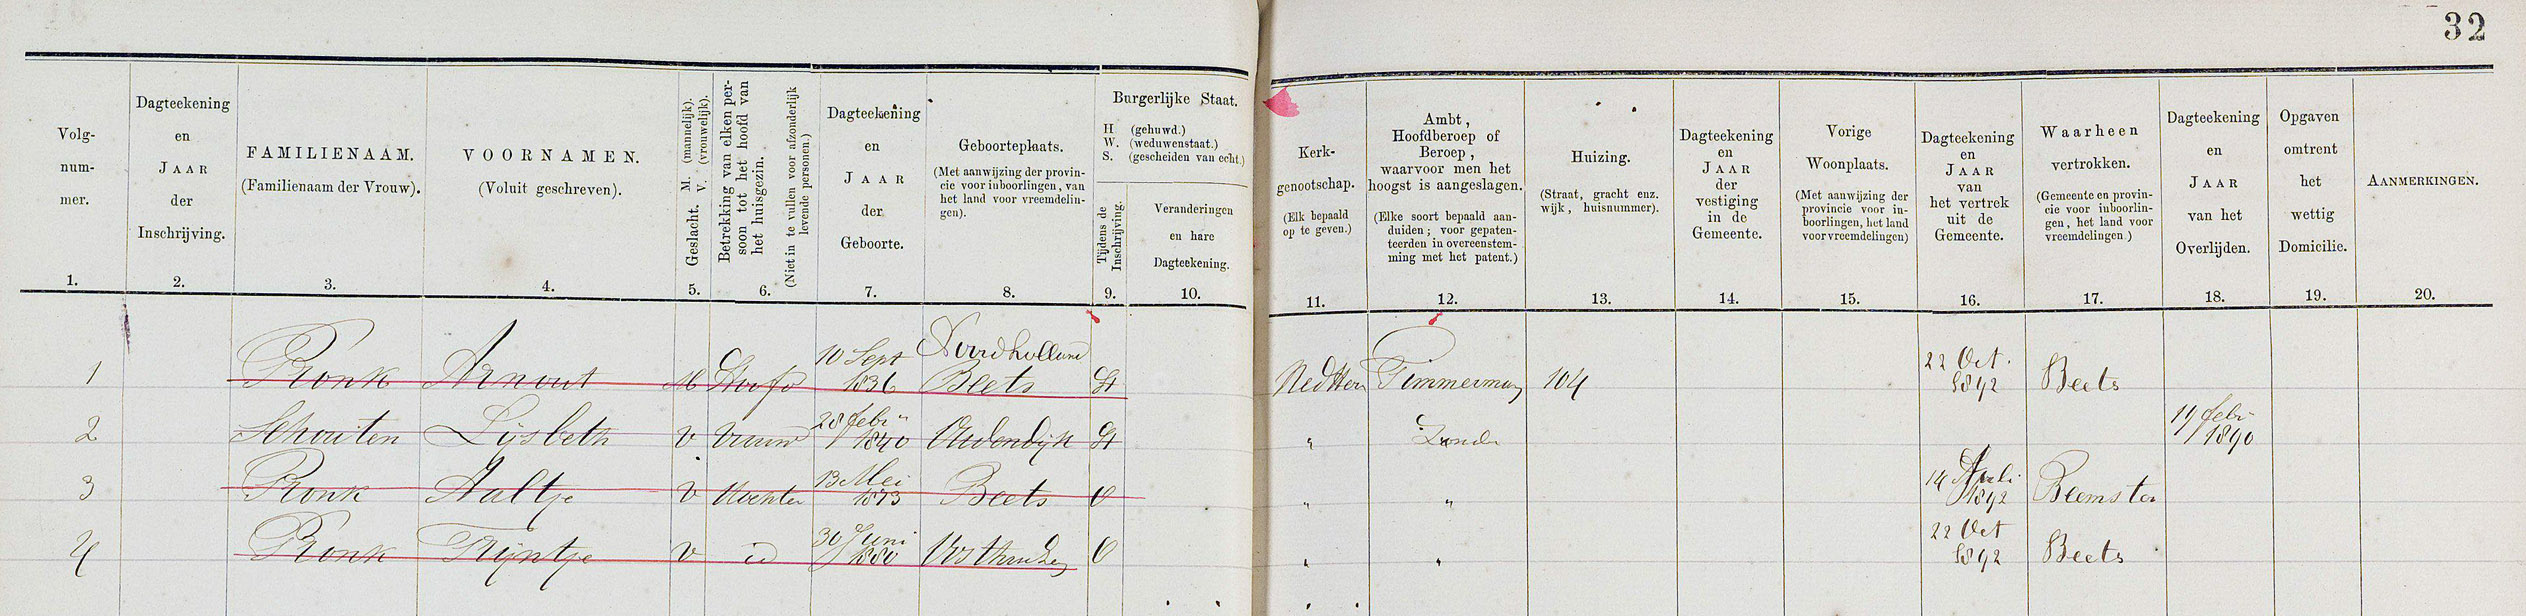 32
Volg-
num-
mer.
1.
Dagteekening
en
JAAR
der
Inschrijving.
2.
FAMILIENAAM.
(Familienaam der Vrouw).
3.
VOORNAMEN.
(Voluit geschreven).
4.
Geslacht. M. (mannelijk).
V. (vrouwelijk).
5.
Betrekking van elken per-
soon tot het hoofd van
het huisgezin.
(Niet in te vullen voor afzonderlijk
levende personen.)
6.
Dagteekening
en
JAAR
der
Geboorte.
7.
Geboorteplaats.
(Met aanwijzing der provin-
cie voor inboorlingen, van
het land voor vreemdelin-
gen).
8.
Burgerlijke Staat.
H (gehuwd.)
W. (weduwenstaat.)
S. (gescheiden van echt.)
Tijdens de
Inschrijving.
9.
Veranderingen
en hare
Dagteekening.
10.
Kerk-
genootschap.
(Elk bepaald
op te geven.)
11.
Ambt,
Hoofdberoep of
Beroep,
waarvoor men het
hoogst is aangeslagen.
(Elke soort bepaald aan-
duiden; voor gepaten-
teerden in overeenstem-
ming met het patent.)
12.
Huizing.
(Straat, gracht enz.
wijk, huisnummer).
13.
Dagteekening
en
JAAR
der
vestiging
in de
Gemeente.
14.
Vorige
Woonplaats.
(Met aanwijzing der
provincie voor in-
boorlingen, het land
voor vreemdelingen)
15.
Dagteekening
en
JAAR
van
het vertrek
uit de
Gemeente.
16.
Waarheen
vertrokken.
(Gemeente en provin-
cie voor inboorlin-
gen, het land voor
vreemdelingen.)
17.
Dagteekening
en
JAAR
van het
Overlijden.
18.
Opgaven
omtrent
het
wettig
Domicilie.
19.
AANMERKINGEN.
20.
1 Pronk Arnout M Hoofd 10 Sept 1836 Noordholland Beets H Ned Herv Timmerman 104 22 Oct. 1892 Beets
2 Schouten Lijsbeth V Vrouw 28 Febr 1840 Oudendijk H " Zonder 19 Febr 1890
3 Pronk Aaltje V dochter 13 Mei 1873 Beets O " " 14 1892 Beemster
4 Pronk Trijntje V id 30 Juni 1880 Oosthuizen O " " 22 Oct 1892 Beets